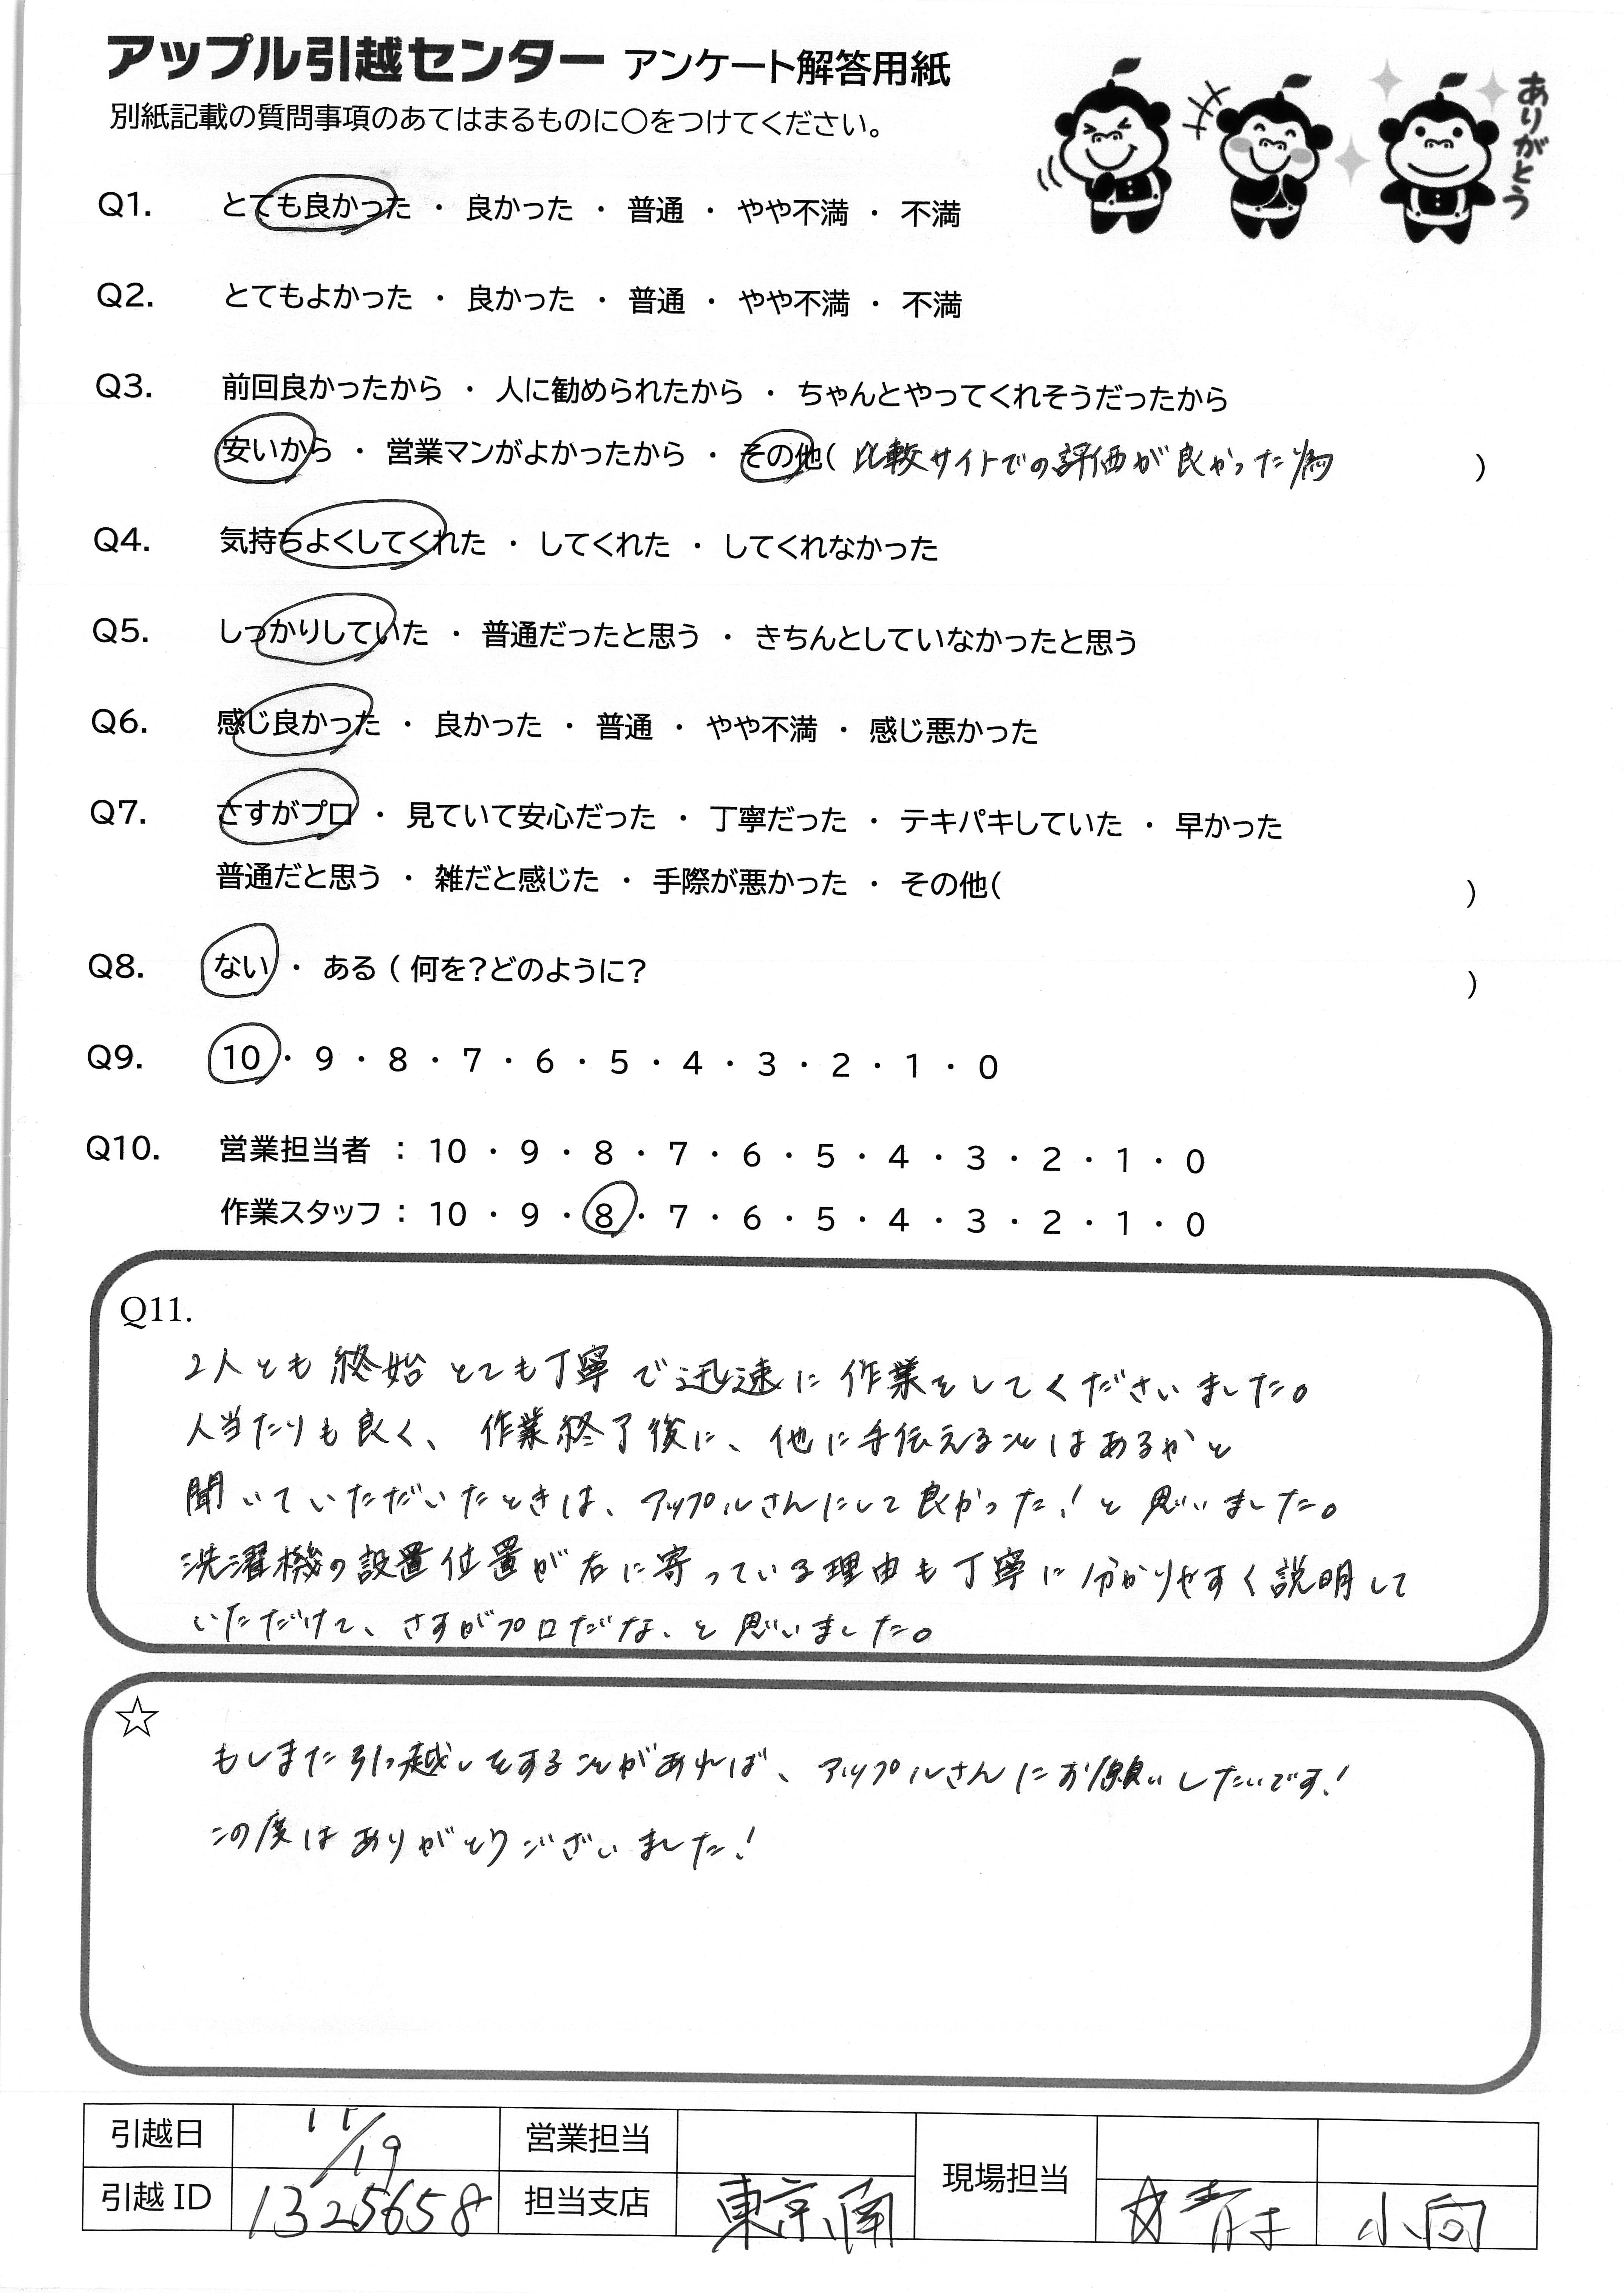 アップル引越センター アンケート解答用紙
別紙記載の質問事項のあてはまるものに○をつけてください。
ありがとう
Q1. とても良かった ・ 良かった ・ 普通 ・ やや不満 ・ 不満
Q2. とてもよかった ・ 良かった ・ 普通 ・ やや不満 ・ 不満
Q3. 前回良かったから ・ 人に勧められたから ・ ちゃんとやってくれそうだったから
安いから ・ 営業マンがよかったから ・ その他( 比較サイトでの評価が良かった為 )
Q4. 気持ちよくしてくれた ・ してくれた ・ してくれなかった
Q5. しっかりしていた ・ 普通だったと思う ・ きちんとしていなかったと思う
Q6. 感じ良かった ・ 良かった ・ 普通 ・ やや不満 ・ 感じ悪かった
Q7. さすがプロ ・ 見ていて安心だった ・ 丁寧だった ・ テキパキしていた ・ 早かった
普通だと思う ・ 雑だと感じた ・ 手際が悪かった ・ その他( )
Q8. ない ・ ある ( 何を?どのように? )
Q9. 10 ・ 9 ・ 8 ・ 7 ・ 6 ・ 5 ・ 4 ・ 3 ・ 2 ・ 1 ・ 0
Q10. 営業担当者 : 10 ・ 9 ・ 8 ・ 7 ・ 6 ・ 5 ・ 4 ・ 3 ・ 2 ・ 1 ・ 0
作業スタッフ : 10 ・ 9 ・ 8 ・ 7 ・ 6 ・ 5 ・ 4 ・ 3 ・ 2 ・ 1 ・ 0
Q11.
2人とも終始とても丁寧で迅速に作業をしてくださいました。
人当たりも良く、作業終了後に、他に手伝えることはあるかと
聞いていただいたときは、アップルさんにして良かった!と思いました。
洗濯機の設置位置が右に寄っている理由も丁寧に分かりやすく説明して
いただけて、さすがプロだな、と思いました。
☆
もしまた引っ越しをすることがあれば、アップルさんにお願いしたいです!
この度はありがとうございました!
引越日 /19 営業担当 現場担当
引越ID 1325658 担当支店 東京南 小向